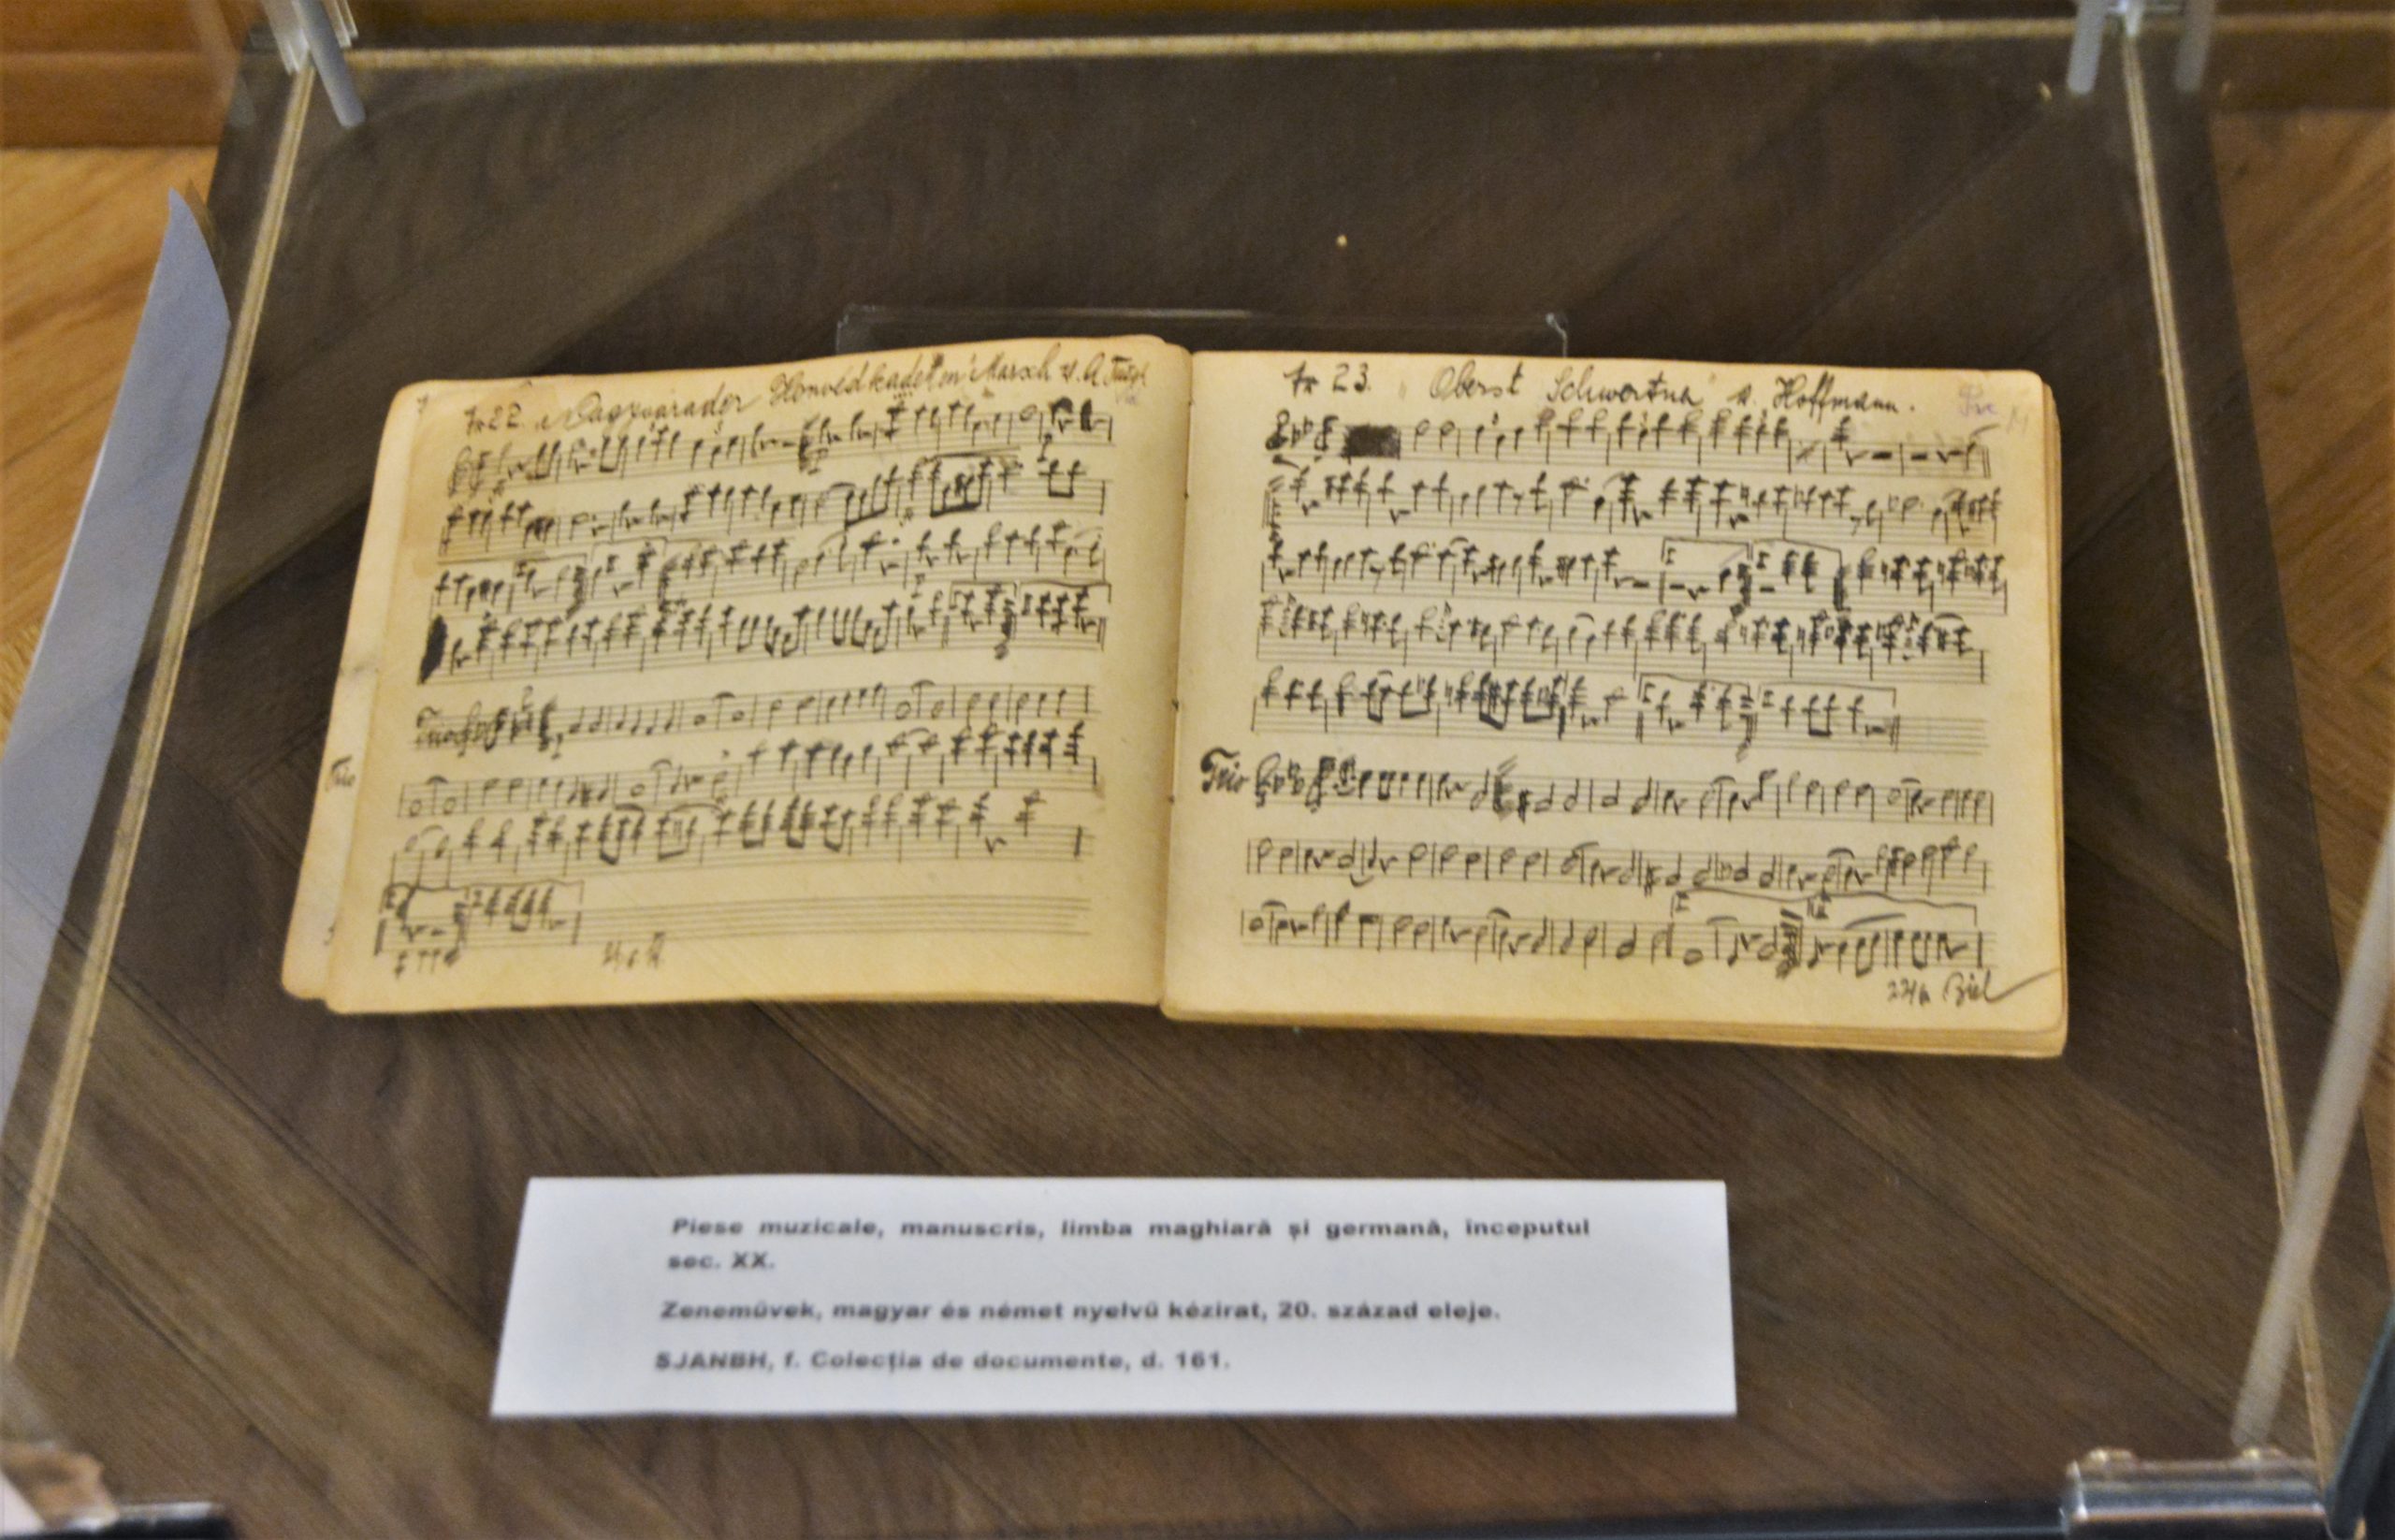 № 22. „Nagyvárader Honvédkadetten" Marsch v. A.
Trio
Trio
№ 23. „Oberst Schwertna" v. Hoffmann.
Trio
Piese muzicale, manuscris, limba maghiară și germană, începutul
sec. XX.
Zeneművek, magyar és német nyelvű kézirat, 20. század eleje.
SJANBH, f. Colecția de documente, d. 161.